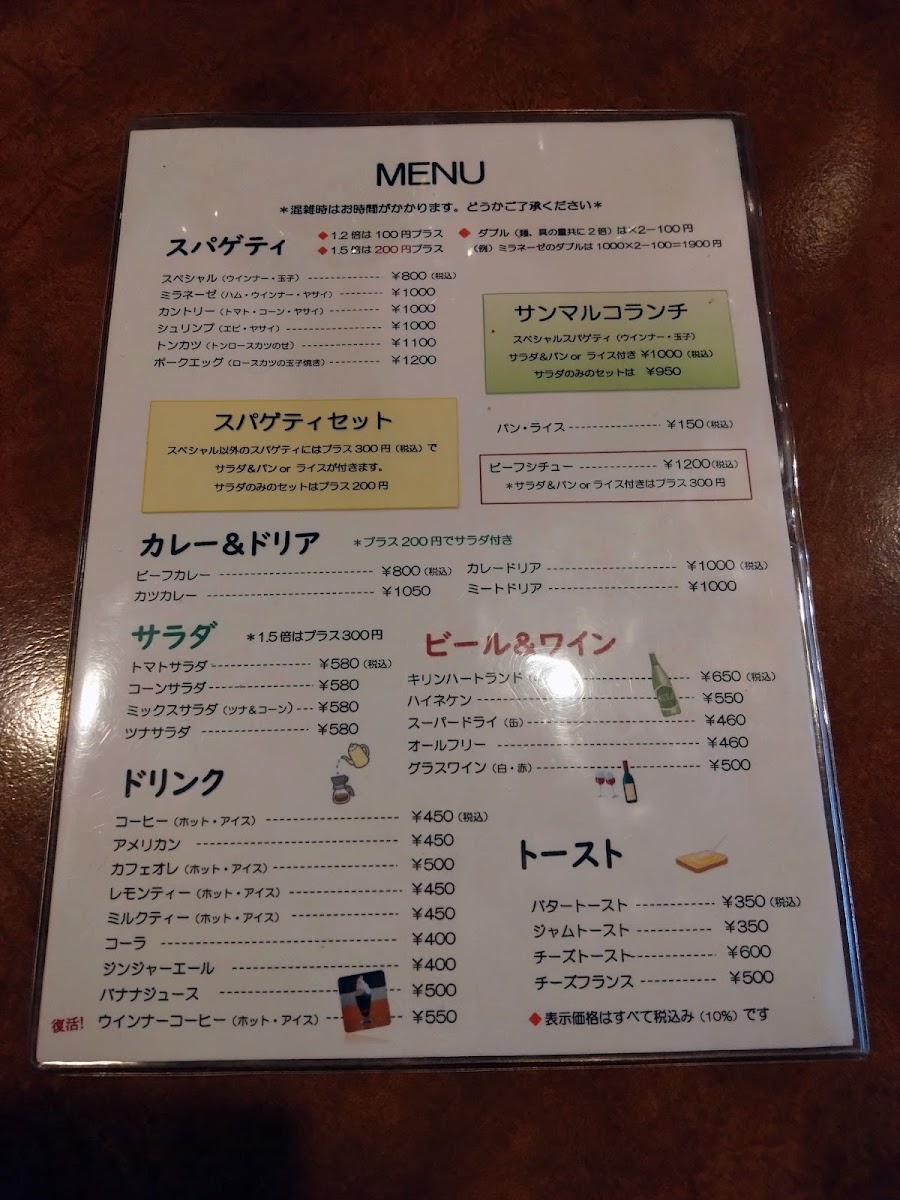 MENU
*混雑時はお時間がかかります。どうかご了承ください*
スパゲティ
◆1.2倍は100円プラス
◆1.5倍は200円プラス
◆ダブル（麺、具の量共に2倍）は×2－100円
（例）ミラネーゼのダブルは1000×2－100＝1900円
スペシャル（ウインナー・玉子） ¥800（税込）
ミラネーゼ（ハム・ウインナー・ヤサイ） ¥1000
カントリー（トマト・コーン・ヤサイ） ¥1000
シュリンプ（エビ・ヤサイ） ¥1000
トンカツ（トンロースカツのせ） ¥1100
ポークエッグ（ロースカツの玉子焼き） ¥1200
サンマルコランチ
スペシャルスパゲティ（ウインナー・玉子）
サラダ&パン or ライス付き ¥1000（税込）
サラダのみのセットは ¥950
スパゲティセット
スペシャル以外のスパゲティにはプラス300円（税込）で
サラダ&パン or ライスが付きます。
サラダのみのセットはプラス200円
パン・ライス ¥150（税込）
ビーフシチュー ¥1200（税込）
*サラダ&パン or ライス付きはプラス300円
カレー&ドリア
*プラス200円でサラダ付き
ビーフカレー ¥800（税込）
カツカレー ¥1050
カレードリア ¥1000（税込）
ミートドリア ¥1000
サラダ
*1.5倍はプラス300円
トマトサラダ ¥580（税込）
コーンサラダ ¥580
ミックスサラダ（ツナ&コーン） ¥580
ツナサラダ ¥580
ビール&ワイン
キリンハートランド ¥650（税込）
ハイネケン ¥550
スーパードライ（缶） ¥460
オールフリー ¥460
グラスワイン（白・赤） ¥500
ドリンク
コーヒー（ホット・アイス） ¥450（税込）
アメリカン ¥450
カフェオレ（ホット・アイス） ¥500
レモンティー（ホット・アイス） ¥450
ミルクティー（ホット・アイス） ¥450
コーラ ¥400
ジンジャーエール ¥400
バナナジュース ¥500
復活! ウインナーコーヒー（ホット・アイス） ¥550
トースト
バタートースト ¥350（税込）
ジャムトースト ¥350
チーズトースト ¥600
チーズフランス ¥500
◆表示価格はすべて税込み（10%）です